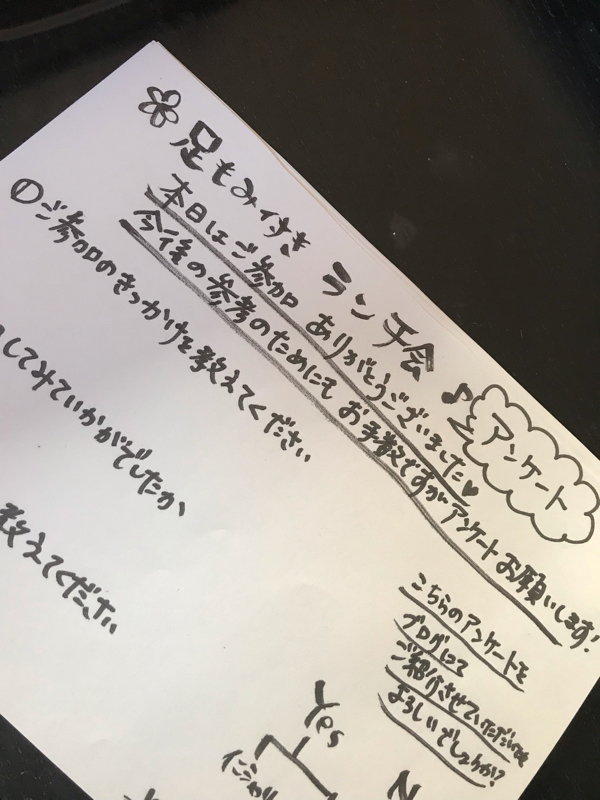 足もみ付き ランチ会♪
アンケート
本日はご参加 ありがとうございました♥
今後の参考のためにも お手数ですがアンケートお願いします!
①ご参加のきっかけを教えてください
してみていかがでしたか
教えてください
こちらのアンケートを
ブログにて
ご紹介させていただいても
よろしいでしょうか?
Yes
イニシャル
N